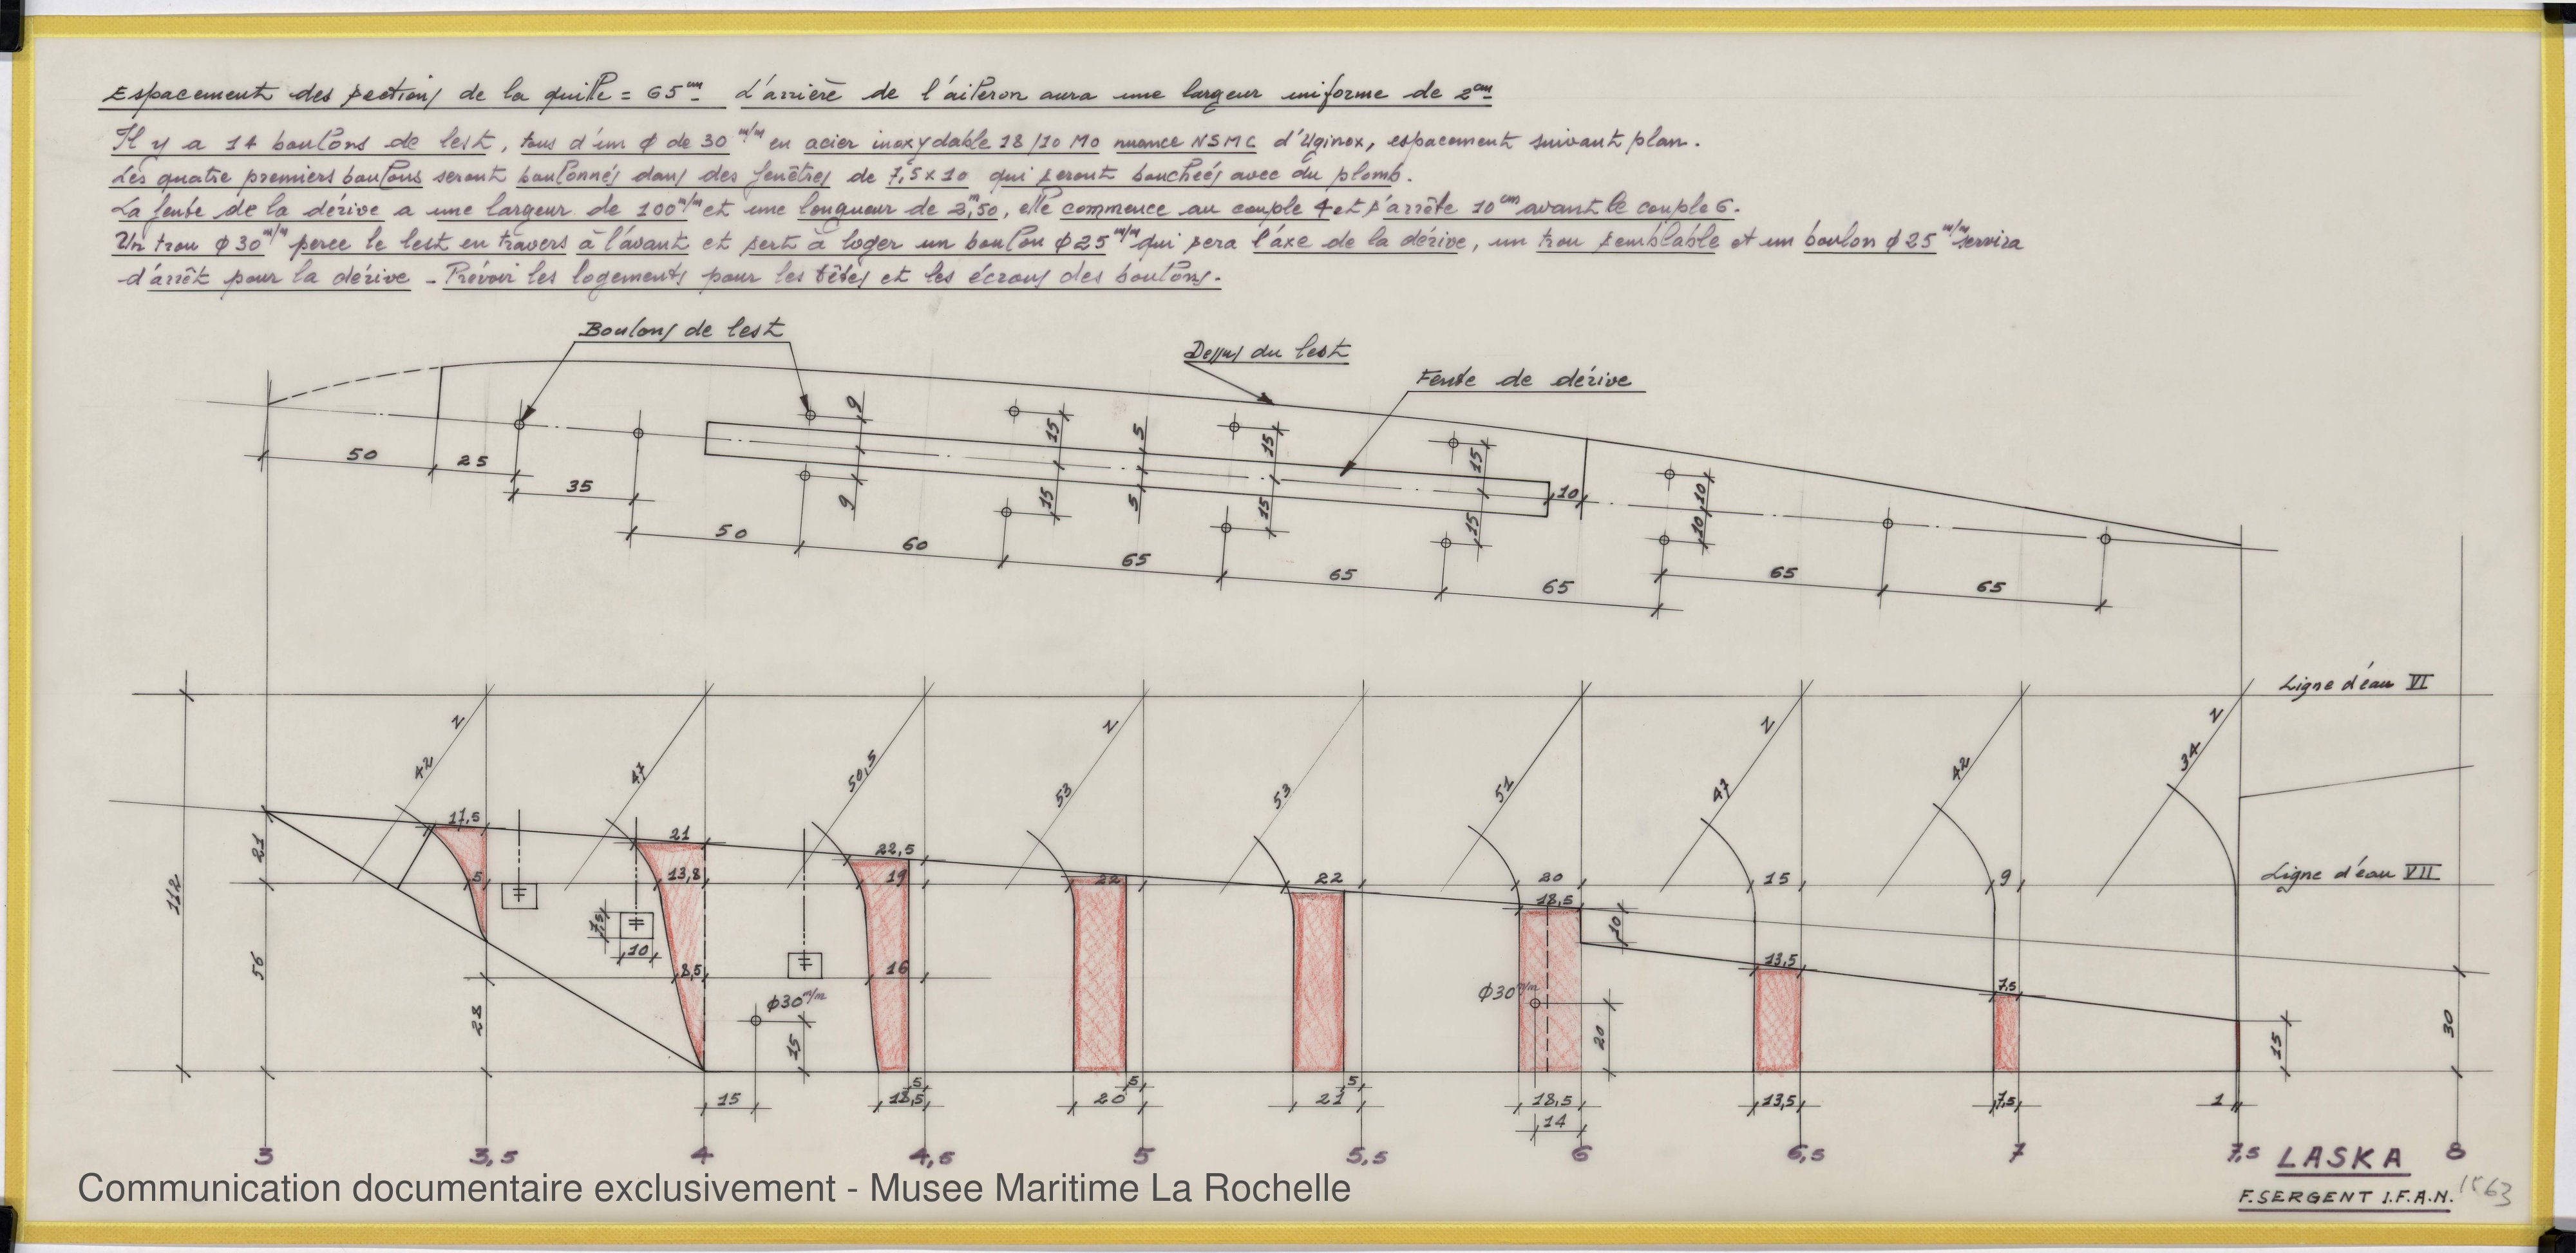 Espacement des sections de la quille = 65cm L'arrière de l'aileron aura une largeur uniforme de 2cm
Il y a 14 boulons de lest, tous d'un φ de 30 m/m en acier inoxydable 18/10 Mo nuance NSMC d'Uginox, espacement suivant plan.
Les quatre premiers boulons seront boulonnés dans des fenêtres de 7,5x10 qui seront bouchées avec du plomb.
La fente de la dérive a une largeur de 100 m/m et une longueur de 2,m50, elle commence au couple 4 et s'arrête 10 cm avant le couple 6.
Un trou φ30 m/m perce le lest en travers à l'avant et sert à loger un boulon φ25 m/m qui sera l'axe de la dérive, un trou semblable et un boulon φ25 m/m servira
d'arrêt pour la dérive - Prévoir les logements pour les têtes et les écrous des boulons.
Boulons de lest
Dessus du lest
Fente de dérive
9 15 5 15 15
50 25 35 9 15 5 15 15 10 10 10
50 60 65 65 65 65 65
Ligne d'eau VI
Z Z Z Z Z
42 47 50,5 53 53 51 47 42 34
17,5 21 22,5 22 22 20 15 9
Ligne d'eau VII
112 21 5 13,8 19 18,5 10
7,5 10 13,5 7,5
56 28 8,5 16
φ30 m/m 15 φ30 m/m 20 15 30
5 5 5
15 18,5 20 21 18,5 13,5 7,5 1
14
3 3,5 4 4,5 5 5,5 6 6,5 7 7,5 8
LASKA
F. SERGENT I.F.A.N.
Communication documentaire exclusivement - Musee Maritime La Rochelle